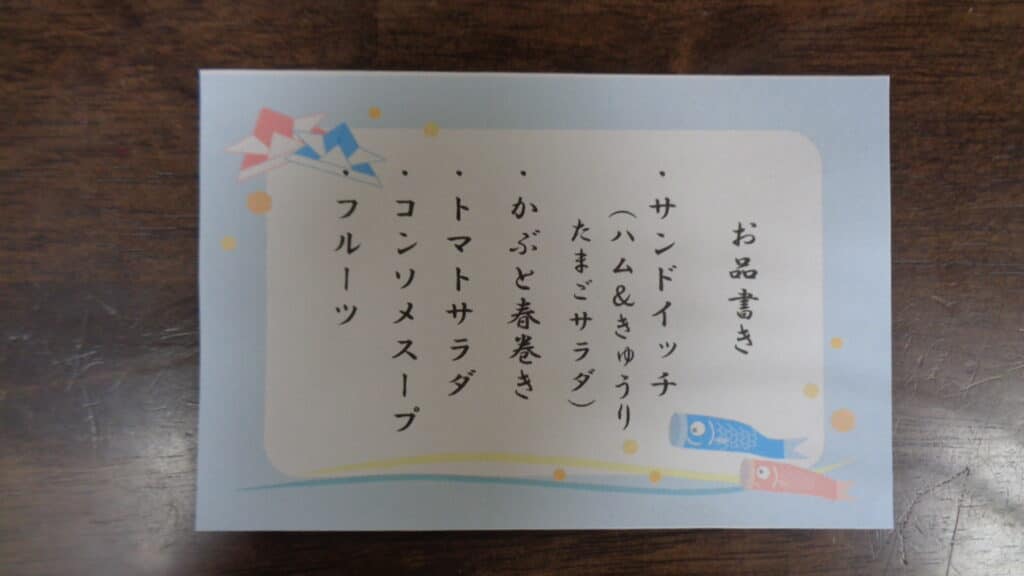 お品書き
・サンドイッチ
（ハム＆きゅうり
たまごサラダ）
・かぶと春巻き
・トマトサラダ
・コンソメスープ
・フルーツ